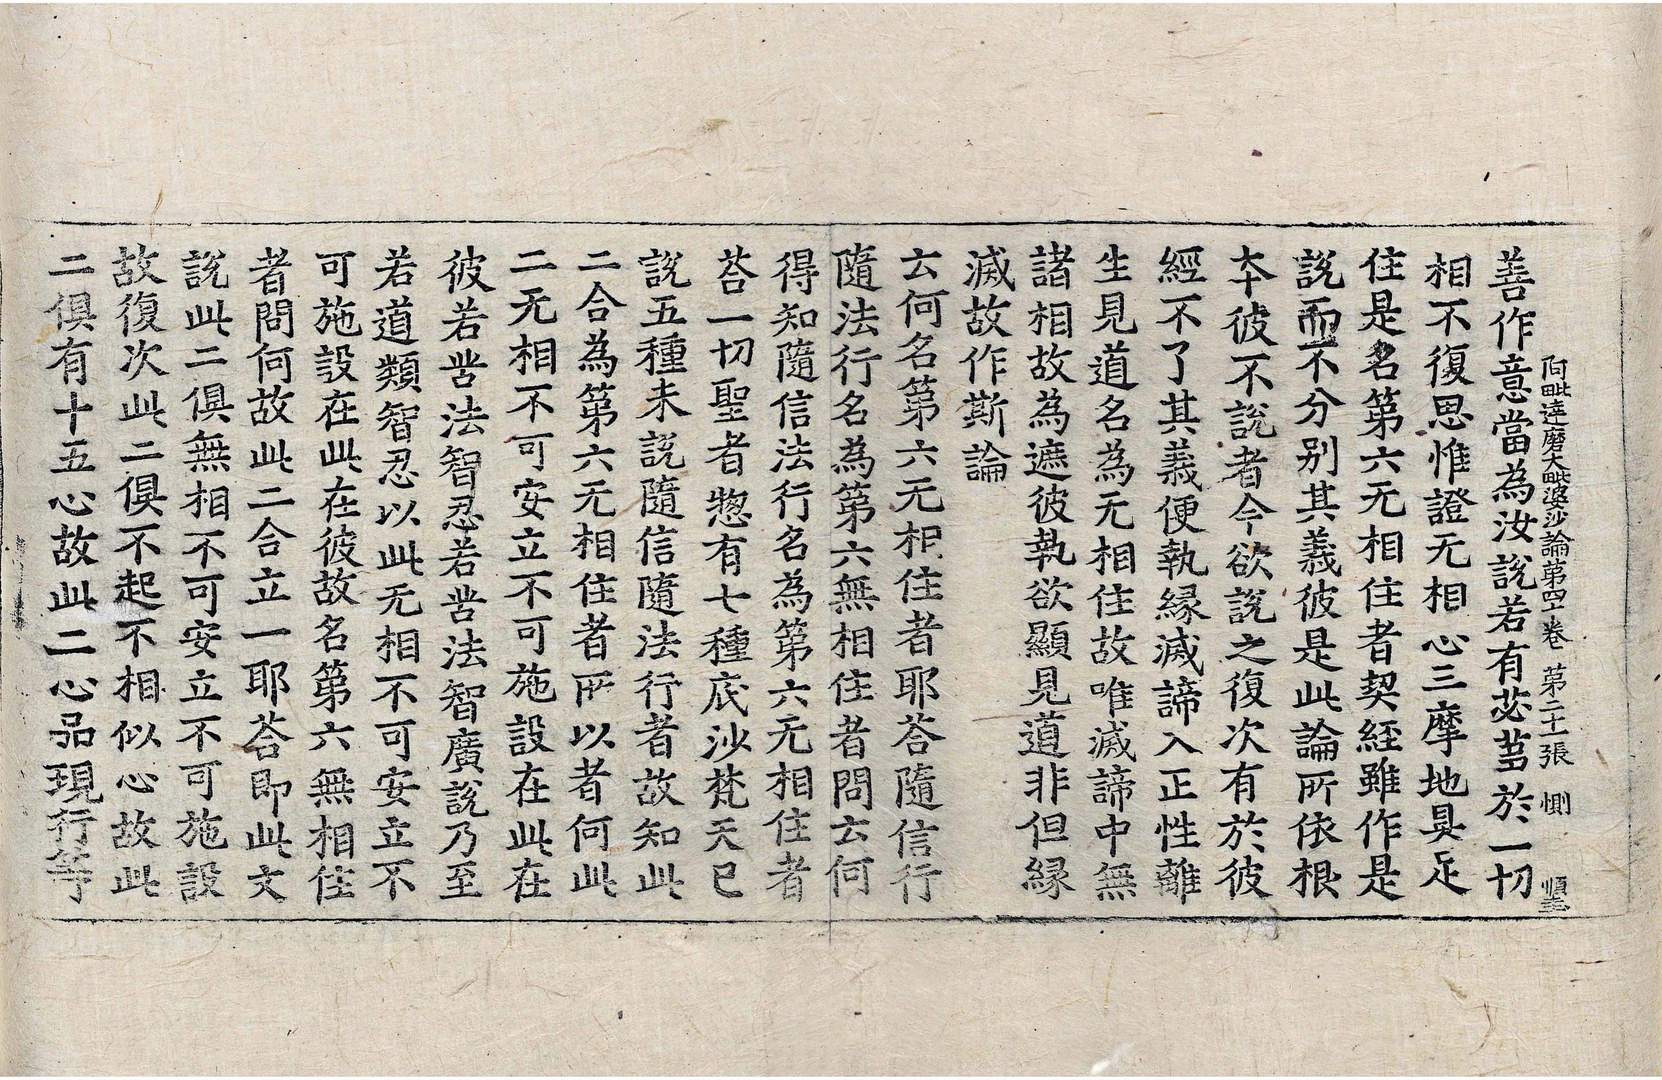 阿毗達磨大毗婆沙論第四十卷 第二十張 惻 順孟
善作意當為汝說若有苾芻於一切
相不復思惟證无相心三摩地具足
住是名第六无相住者契經雖作是
說而不分別其義彼是此論所依根
本彼不說者今欲說之復次有於彼
經不了其義便執緣滅諦入正性離
生見道名為无相住故唯滅諦中無
諸相故為遮彼執欲顯見道非但緣
滅故作斯論
云何名第六无相住者耶荅隨信行
隨法行名為第六無相住者問云何
得知隨信法行名為第六无相住者
荅一切聖者惣有七種底沙梵天已
說五種未說隨信隨法行者故知此
二合為第六无相住者所以者何此
二无相不可安立不可施設在此在
彼若苦法智忍若苦法智廣說乃至
若道類智忍以此无相不可安立不
可施設在此在彼故名第六無相住
者問何故此二合立一耶荅即此文
說此二俱無相不可安立不可施設
故復次此二俱不起不相似心故此
二俱有十五心故此二心品現行等